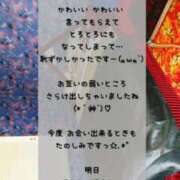 かわいい かわいい
言ってもらえて
とろとろにも
なってしまって…
恥ずかしかったですー(⁄ω⁄)
お互いの弱いところ
さらけ出しちゃいましたね
(*´艸`)♡
今度 お会い出来るときも
たのしみですっ☆.*°
明日